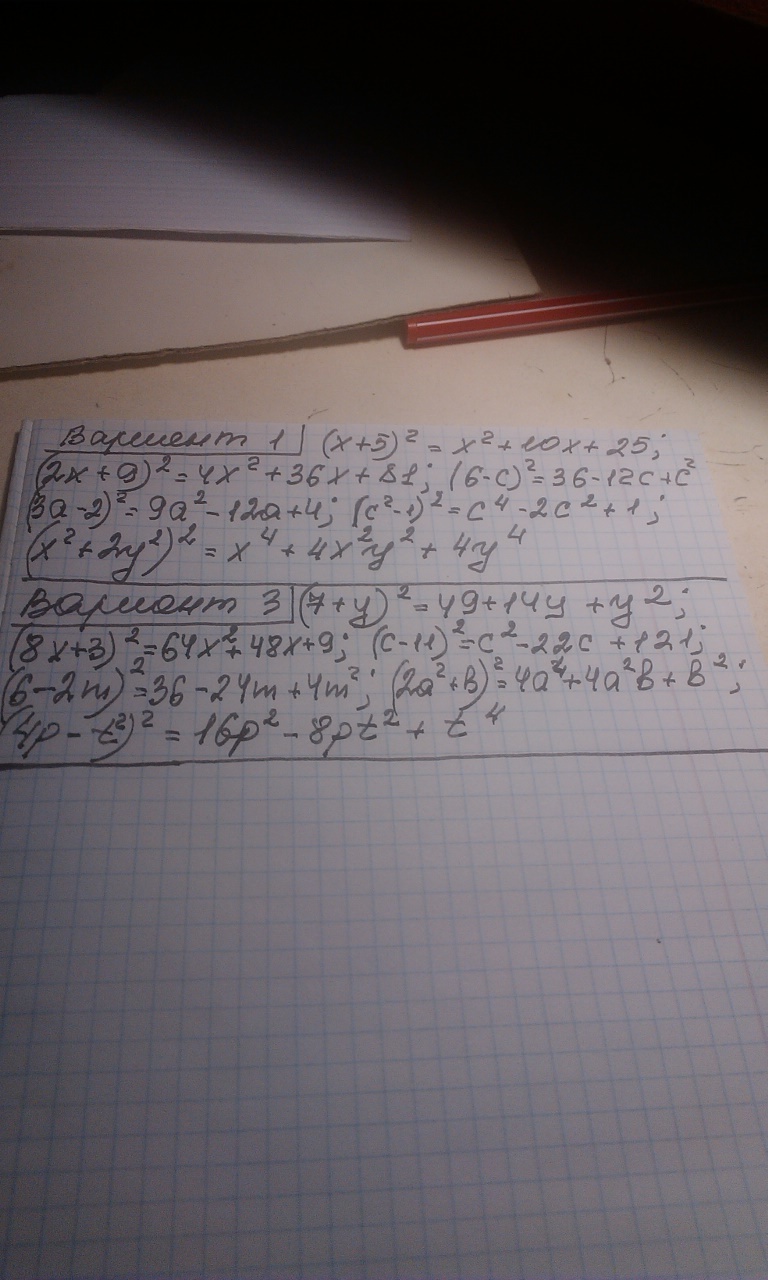 Вариант 1 (x+5)² = x²+10x+25;
(2x+9)²=4x²+36x+81; (6-c)²=36-12c+c²
(3a-2)²=9a²-12a+4; (c²-1)²=c⁴-2c²+1;
(x²+2y²)²=x⁴+4x²y²+4y⁴
Вариант 3 (7+y)²=49+14y+y²;
(8x+3)²=64x²+48x+9; (c-11)²=c²-22c+121;
(6-2m)²=36-24m+4m²; (2a²+b)²=4a⁴+4a²b+b²;
(4p-t²)²=16p²-8pt²+t⁴